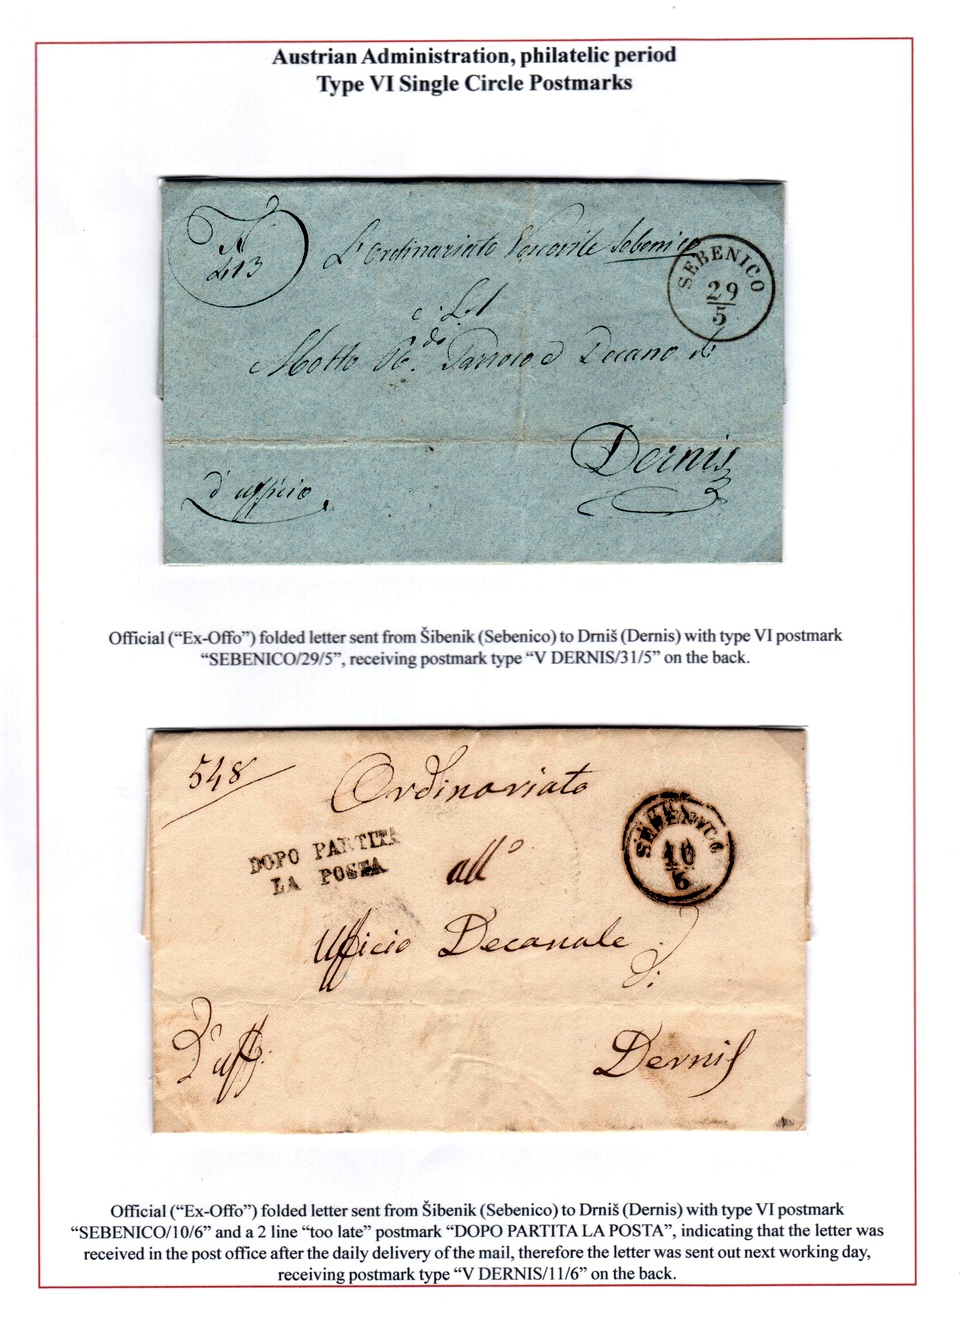 Austrian Administration, philatelic period
Type VI Single Circle Postmarks
N
413
L'Ordinariato Vescovile Sebenico
SEBENICO
29
5
Molto Rdo. Parroco e Decano di
Dernis
d'ufficio
Official (“Ex-Offo”) folded letter sent from Šibenik (Sebenico) to Drniš (Dernis) with type VI postmark
“SEBENICO/29/5”, receiving postmark type “V DERNIS/31/5” on the back.
548
Ordinariato
SEBENICO
10
6
DOPO PARTITA
LA POSTA
all'
Ufficio Decanale
di
Dernis
D'uff.
Official (“Ex-Offo”) folded letter sent from Šibenik (Sebenico) to Drniš (Dernis) with type VI postmark
“SEBENICO/10/6” and a 2 line “too late” postmark “DOPO PARTITA LA POSTA”, indicating that the letter was
received in the post office after the daily delivery of the mail, therefore the letter was sent out next working day,
receiving postmark type “V DERNIS/11/6” on the back.